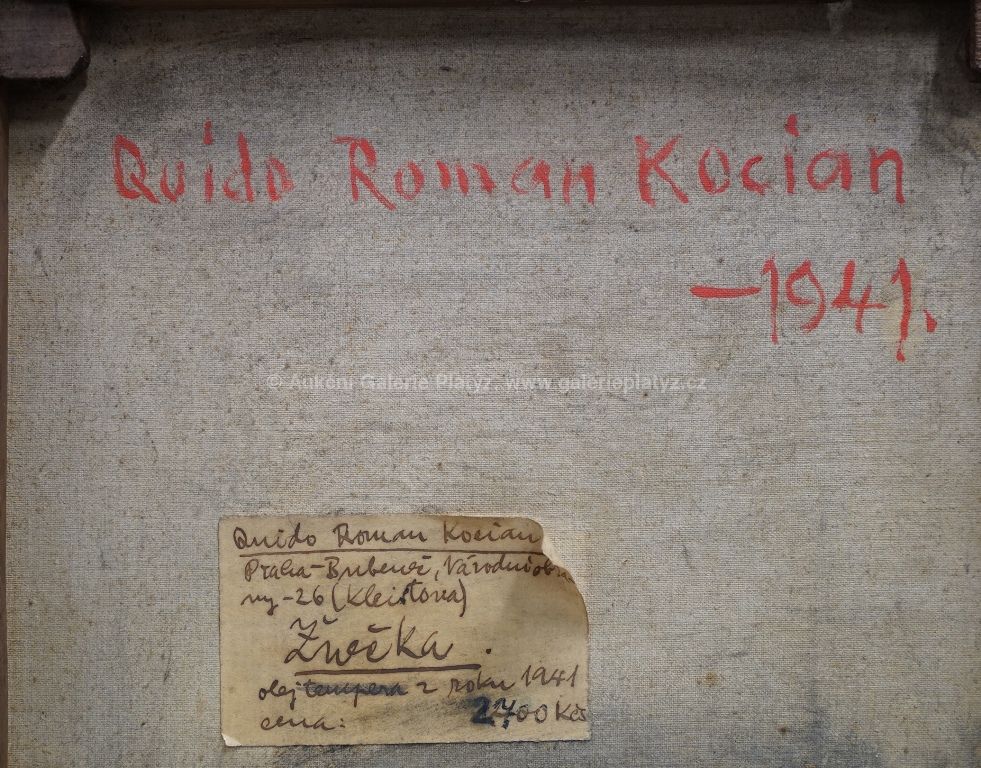 Quido Roman Kocian
-1941.
© Aukční Galerie Platýz, www.galerieplatyz.cz
Quido Roman Kocian
Praha-Bubeneč, Národní obra
ny-26 (Kleistova)
Žnečka.
olej tempera z roku 1941
cena: 2700 Kčs